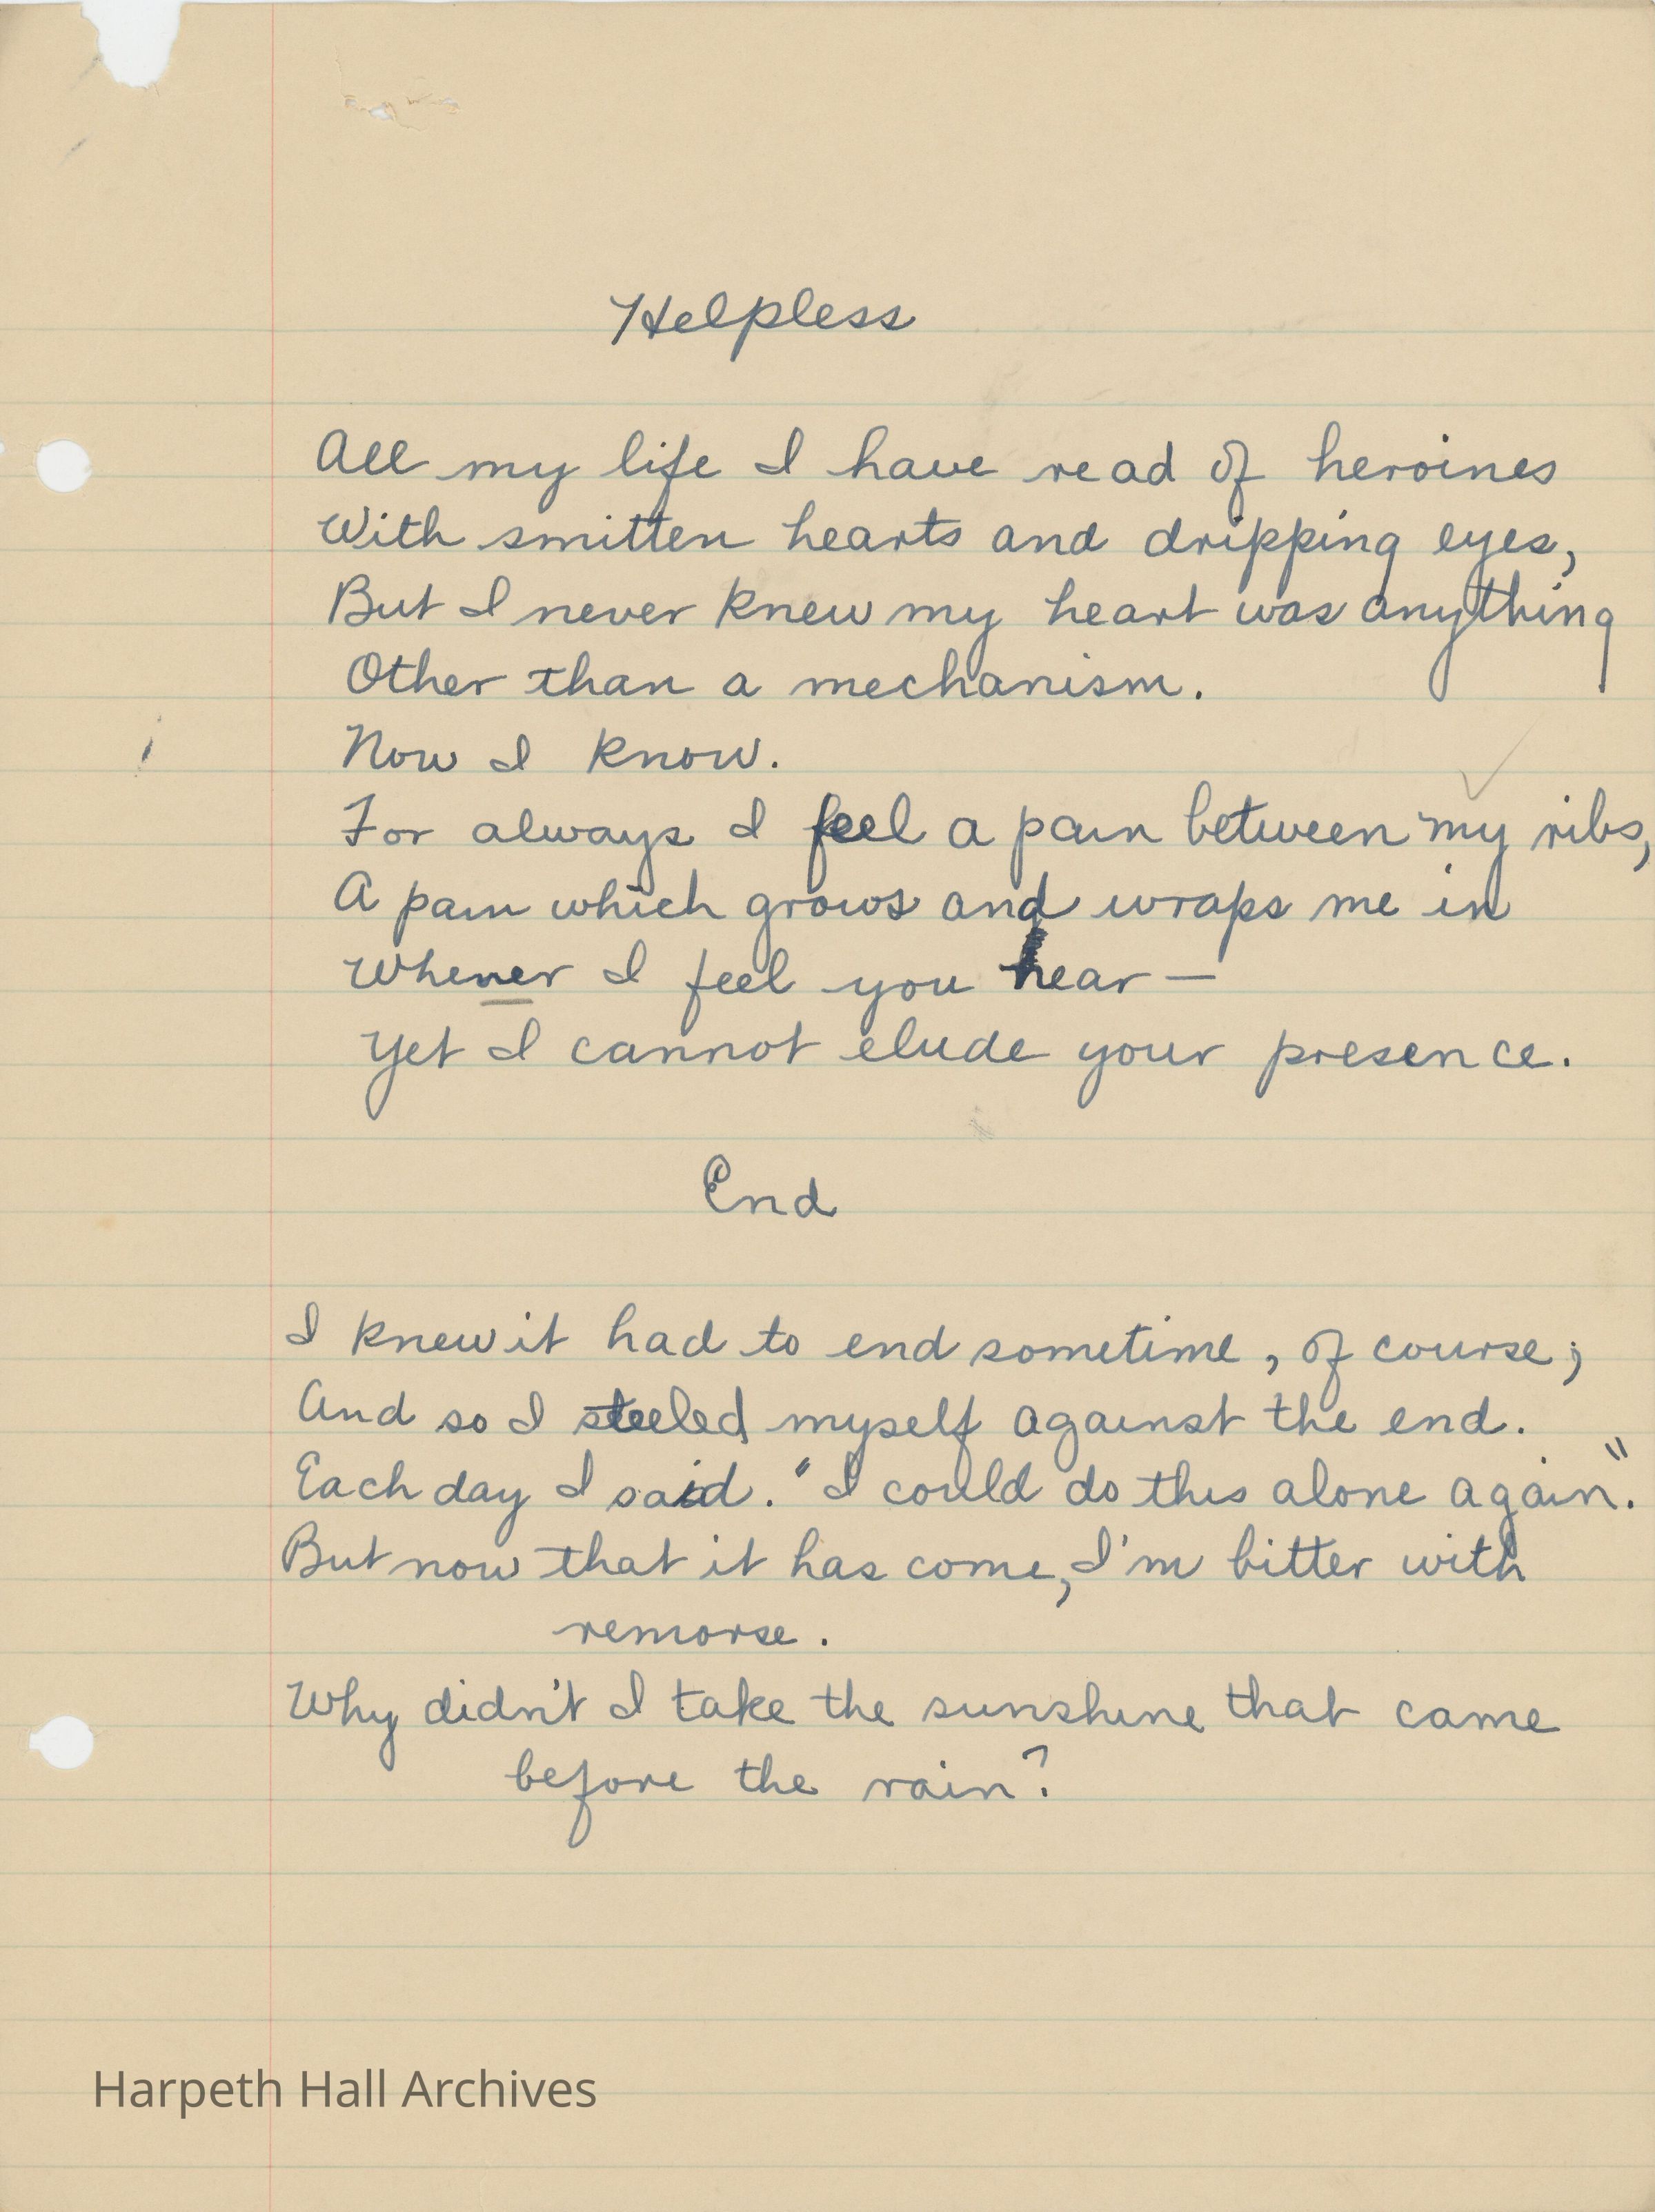 Helpless
All my life I have read of heroines
With smitten hearts and dripping eyes,
But I never knew my heart was anything
Other than a mechanism.
Now I know.
For always I feel a pain between my ribs,
A pain which grows and wraps me in
Whenever I feel you near —
Yet I cannot elude your presence.
End
I knew it had to end sometime, of course;
And so I steeled myself against the end.
Each day I said. "I could do this alone again."
But now that it has come, I'm bitter with
remorse.
Why didn't I take the sunshine that came
before the rain?
Harpeth Hall Archives